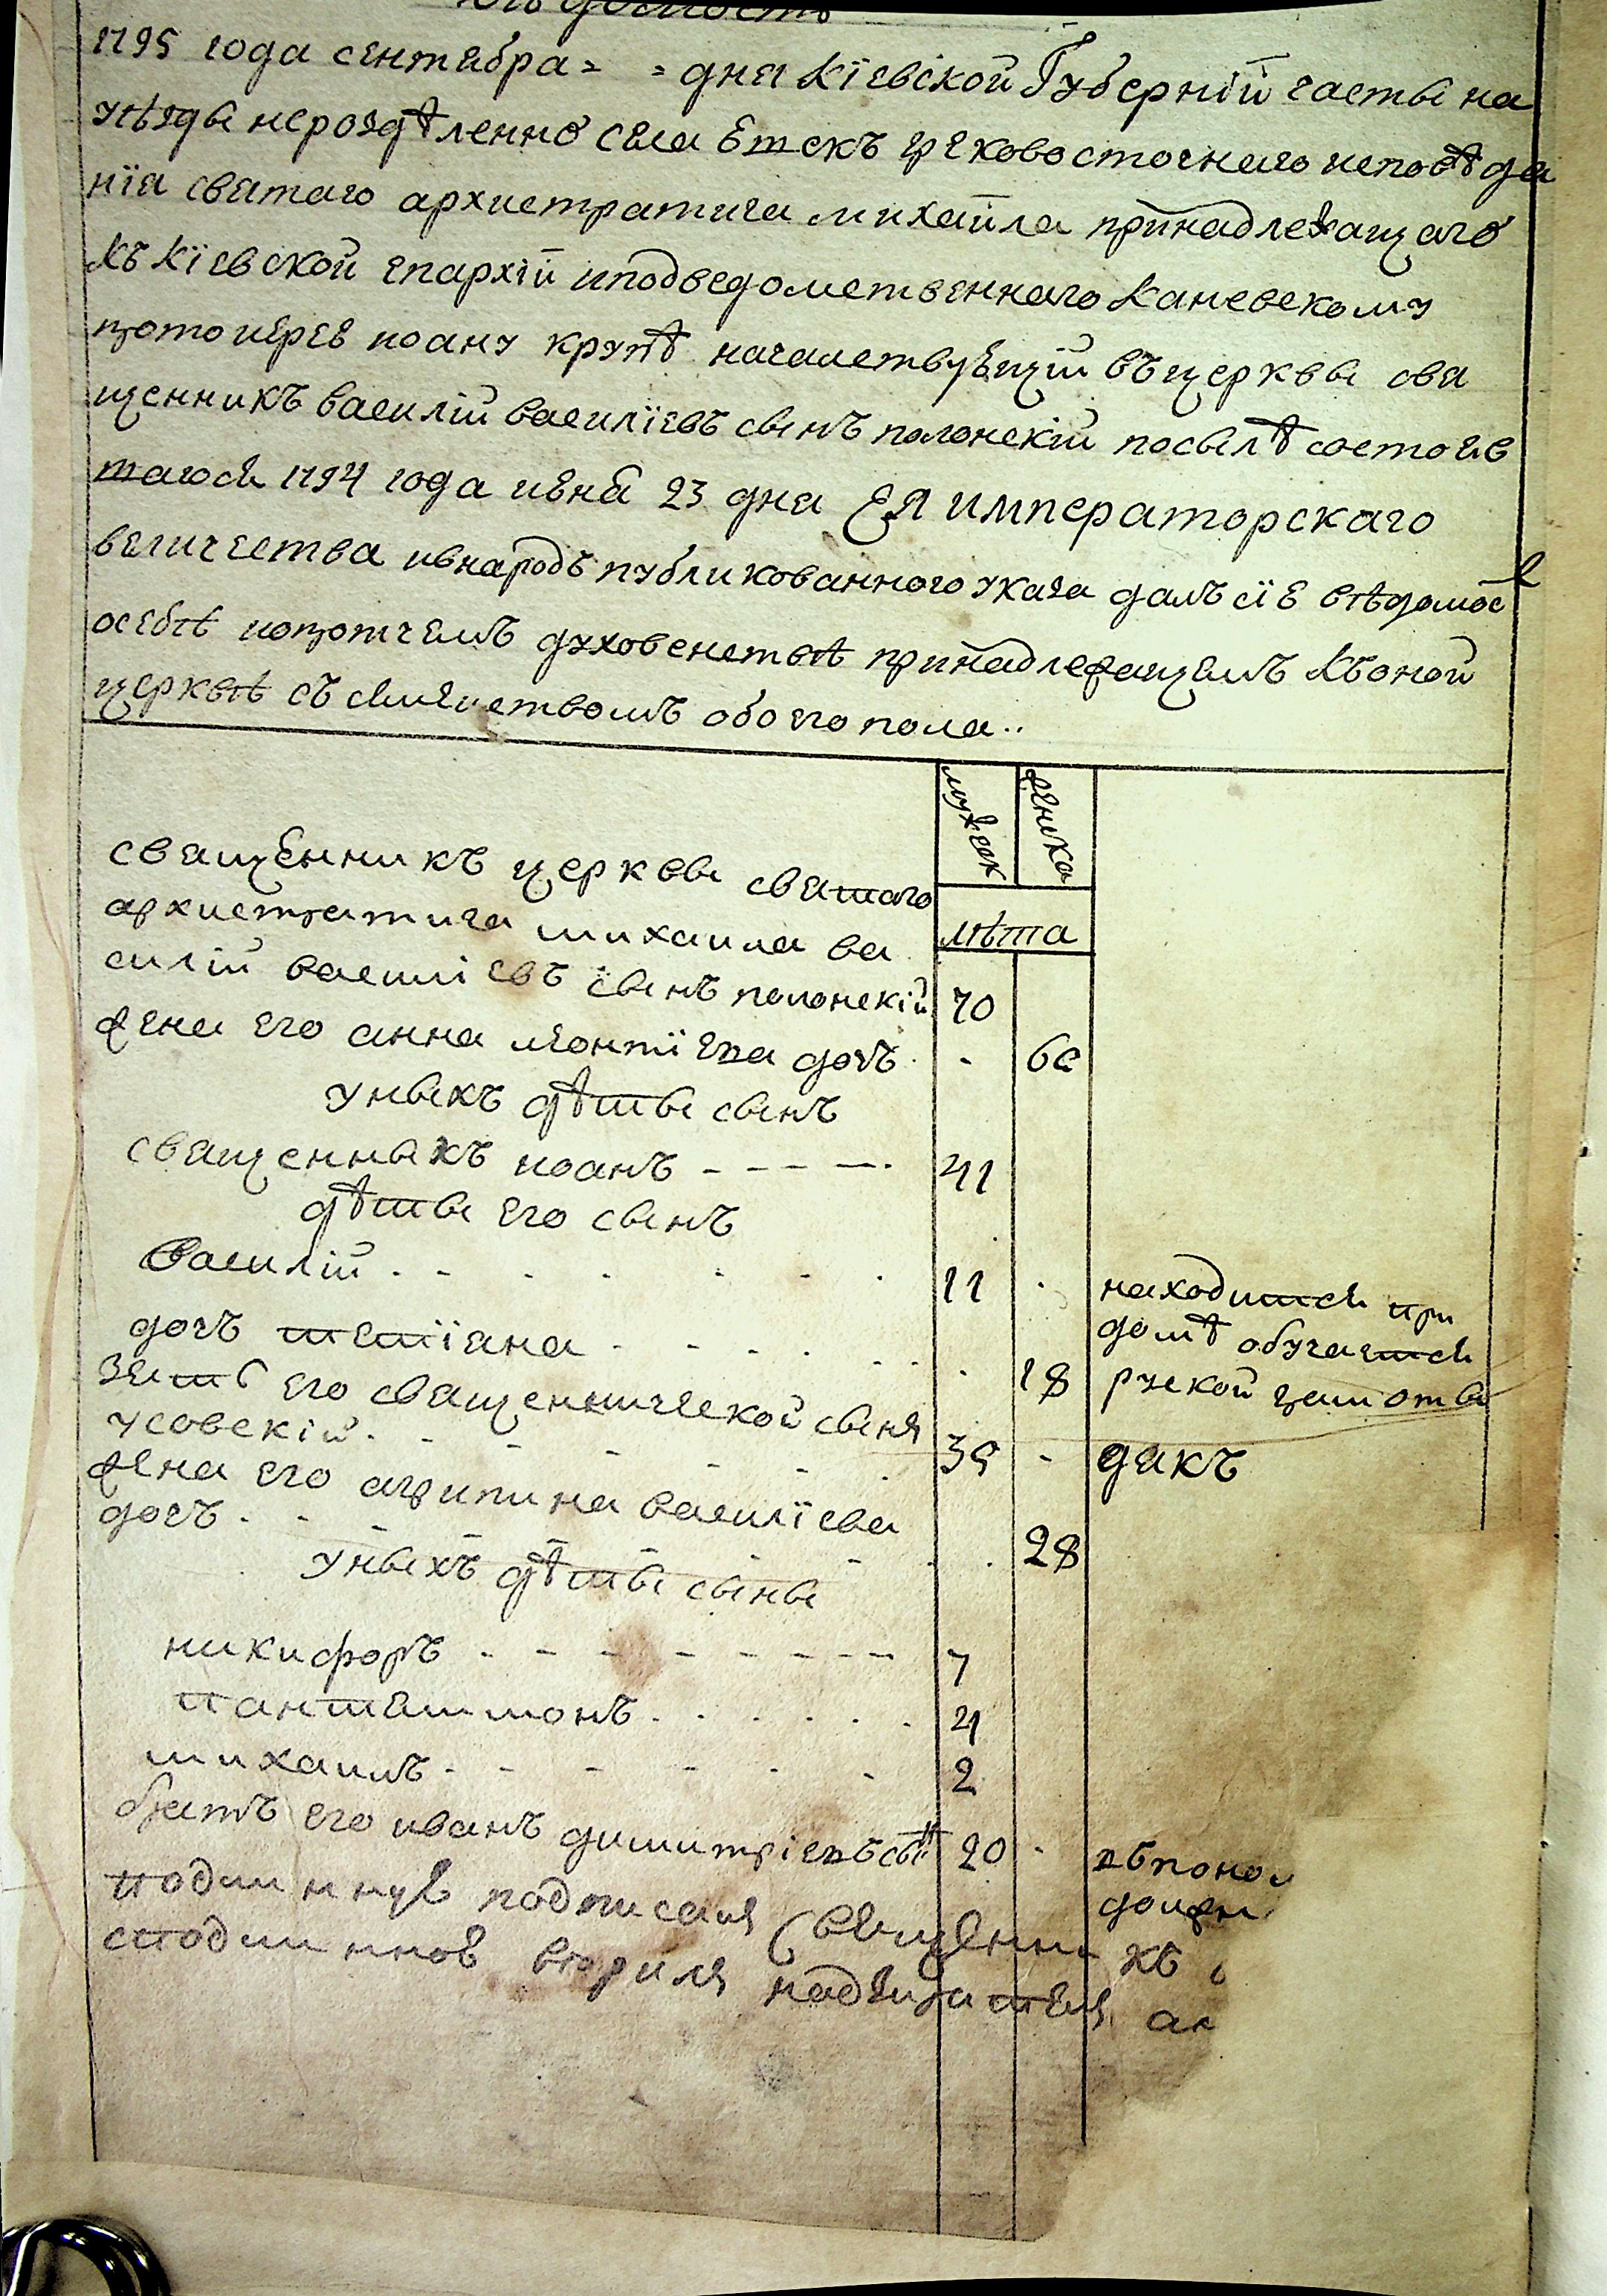 1795 года сентября = = дня Кїевской Губерній часты на
уѣзды нероздѣленно села Емскъ грековосточнаго исповѣда
нїя святаго архистратига михайла принадлежащаго
къ Кїевской епархій иподведомственнаго Каневскому
протоиерею иоану крупѣ началствующій въ церквы свя
щенникъ василій василїевъ сынъ полонскій посылѣ состояв
тагося 1794 года июня 23 дня ЕЯ императорскаго
величества ивнародъ публикованного указа далъ сїю вѣдомос
осебѣ ипротчемъ духовенствѣ принадлежащемъ Къоной
церквѣ съ обоего пола..
мужеск
женска
лѣта
священникъ церквы святаго
архистратига михаила ва
силій василїевъ сынъ полонскій 70
жена его анна леонтїева дочь - 60
уныхъ дѣты сынъ
священныкъ иоанъ - - - - 41
дѣты его сынъ
Василій 11 находится при
домѣ обучается
руской грамоты
дочь 18
зять его священнической сынъ
усовскій 35 - дякъ
жена его агрипина василїева
дочь 28
уныхъ дѣты сыны
никифоръ - - - - - - - - 7
пантелимонъ 4
михаилъ 2
братъ его иванъ димитріевъ сынъ 20
подлинную подписалъ священни къ
сподлинною